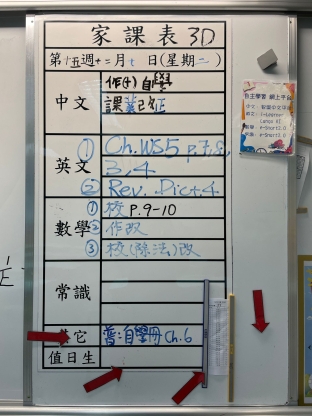 家課表 3D
第十五週十二月七日(星期二)
中文
作(十)自學
課業改正
英文
① Ch.WS5 p.7,8,
3,4
② Rev. Dict.4
數學
① 校 P.9-10
② 作改
③ 校(除法)改
常識
其它
普:自學冊 Ch.6
值日生
自主學習 網上平台